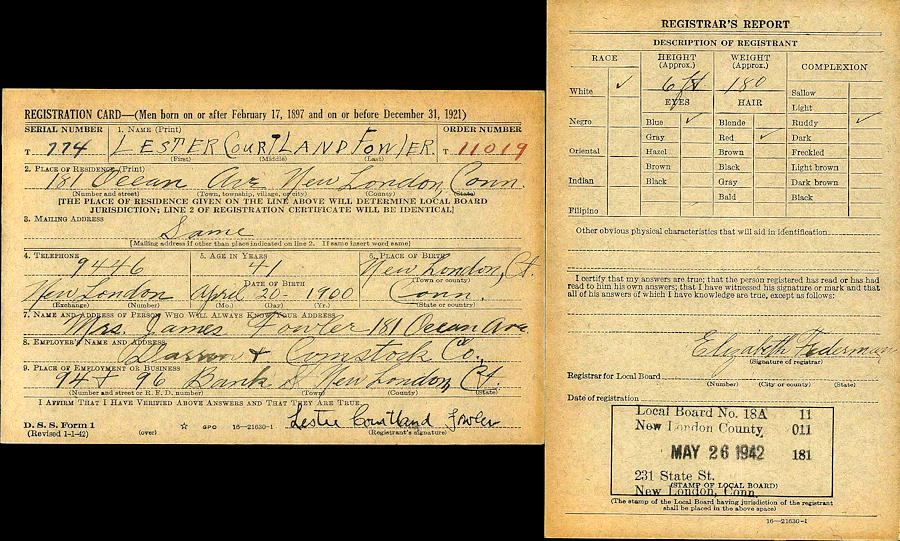 REGISTRATION CARD—(Men born on or after February 17, 1897 and on or before December 31, 1921)
SERIAL NUMBER 1. NAME (Print) ORDER NUMBER
T 774 LESTER COURTLAND FOWLER. T 11019
(First) (Middle) (Last)
2. PLACE OF RESIDENCE (Print)
181 Ocean Ave New London, Conn.
(Number and street) (Town, township, village, or city) (County) (State)
[THE PLACE OF RESIDENCE GIVEN ON THE LINE ABOVE WILL DETERMINE LOCAL BOARD
JURISDICTION; LINE 2 OF REGISTRATION CERTIFICATE WILL BE IDENTICAL]
3. MAILING ADDRESS
Same
[Mailing address if other than place indicated on line 2. If same insert word same]
4. TELEPHONE 5. AGE IN YEARS 6. PLACE OF BIRTH
9446 41 New London, Ct.
DATE OF BIRTH (Town or county)
New London April 20- 1900 Conn.
(Exchange) (Number) (Mo.) (Day) (Yr.) (State or country)
7. NAME AND ADDRESS OF PERSON WHO WILL ALWAYS KNOW YOUR ADDRESS
Mrs. James Fowler 181 Ocean Ave.
8. EMPLOYER'S NAME AND ADDRESS
& Comstock Co.,
9. PLACE OF EMPLOYMENT OR BUSINESS
94 & 96 Bank St New London, Ct.
(Number and street or R. F. D. number) (Town) (County) (State)
I AFFIRM THAT I HAVE VERIFIED ABOVE ANSWERS AND THAT THEY ARE TRUE.
D. S. S. Form 1 Lester Courtland Fowler
(Revised 1-1-42) (over) GPO 16—21630-1 (Registrant's signature)
REGISTRAR'S REPORT
DESCRIPTION OF REGISTRANT
RACE HEIGHT (Approx.) WEIGHT (Approx.) COMPLEXION
White ✓ 6 ft 180 Sallow
EYES HAIR Light
Negro Blue ✓ Blonde Ruddy ✓
Gray Red ✓ Dark
Oriental Hazel Brown Freckled
Brown Black Light brown
Indian Black Gray Dark brown
Bald Black
Filipino
Other obvious physical characteristics that will aid in identification
I certify that my answers are true; that the person registered has read or has had
read to him his own answers; that I have witnessed his signature or mark and that
all of his answers of which I have knowledge are true, except as follows:
Elizabeth Federman
(Signature of registrar)
Registrar for Local Board
(Number) (City or county) (State)
Date of registration
Local Board No. 18A 11
New London County 011
MAY 26 1942 181
231 State St.
(STAMP OF LOCAL BOARD)
New London, Conn.
(The stamp of the Local Board having jurisdiction of the registrant
shall be placed in the above space)
16—21630-1